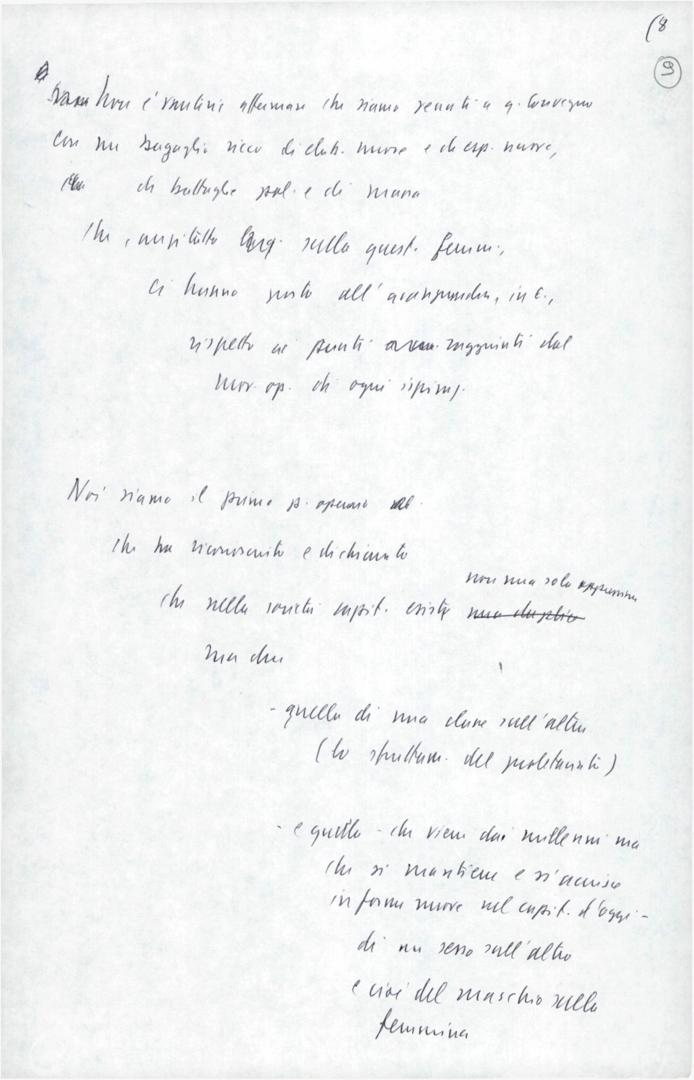 (8
20
Non è vanteria affermare che siamo venuti a q. Convegno
con un bagaglio ricco di dati nuovi e di esp. nuove,
di battaglie pol. e di massa
che, anzitutto sulla quest. femm.,
ci hanno posto all'avanguardia, in E.,
rispetto ai punti raggiunti dal
mov. op. di ogni
Noi siamo il primo p. operaio
che ha riconosciuto e dichiarato
non una sola oppressione
che nella società capit. esiste una duplice
ma due
- quella di una classe sull'altra
(lo sfruttam. del proletariato)
- e quella - che viene dai millenni ma
che si mantiene e si acuisce
in forme nuove nel capit. d'oggi -
di un sesso sull'altro
e cioè del maschio sulla
femmina